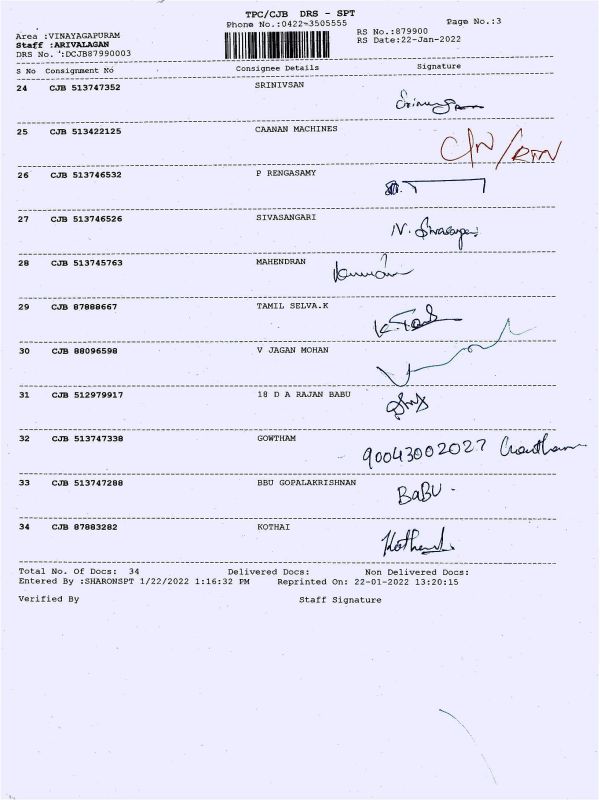 TPC/CJB DRS - SPT
Phone No.:0422-3505555
Page No.:3
Area :VINAYAGAPURAM
RS No.:879900
Staff :ARIVALAGAN
RS Date:22-Jan-2022
DRS No. :DCJB87990003
S No Consignment No Consignee Details Signature
24 CJB 513747352 SRINIVSAN
25 CJB 513422125 CAANAN MACHINES
C/N/RTN
26 CJB 513746532 P RENGASAMY
27 CJB 513746526 SIVASANGARI
N. Sivasangari
28 CJB 513745763 MAHENDRAN
29 CJB 87888667 TAMIL SELVA.K
30 CJB 88096598 V JAGAN MOHAN
31 CJB 512979917 18 D A RAJAN BABU
32 CJB 513747338 GOWTHAM
90043002027 Gowtham
33 CJB 513747288 BBU GOPALAKRISHNAN
BaBU .
34 CJB 87883282 KOTHAI
Total No. Of Docs: 34 Delivered Docs: Non Delivered Docs:
Entered By :SHARONSPT 1/22/2022 1:16:32 PM Reprinted On: 22-01-2022 13:20:15
Verified By Staff Signature